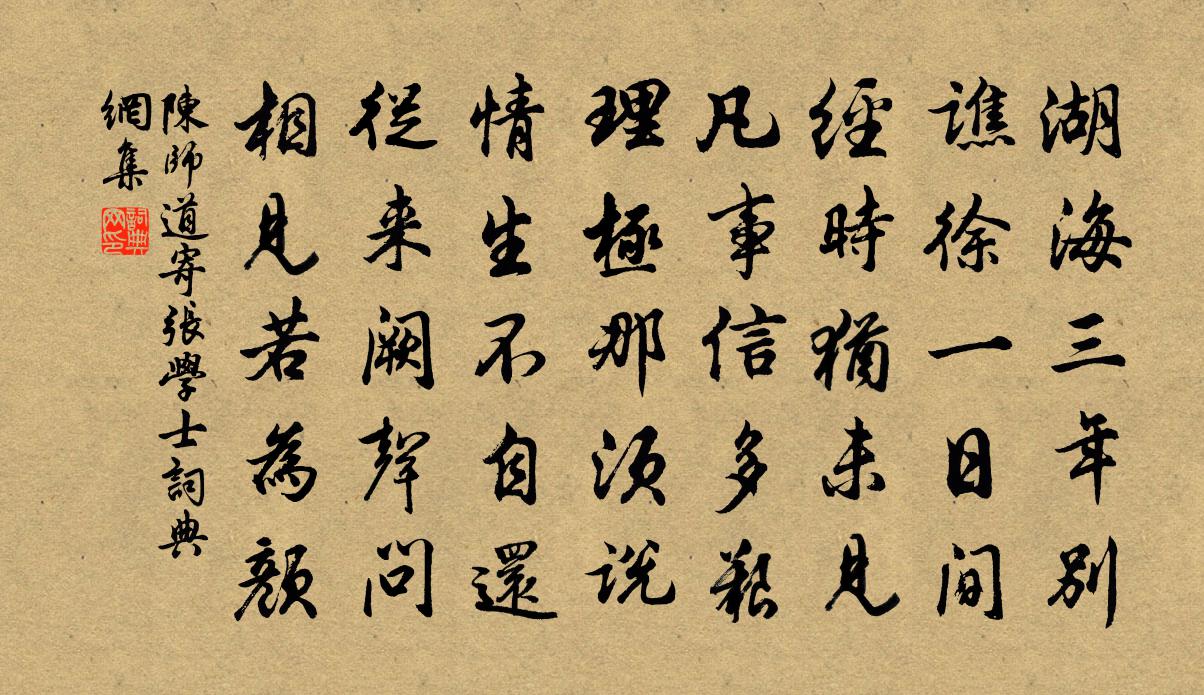 湖海三年別
譙徐一日間
經時猶未見
凡事信多艱
理極那須説
情生不自還
從来闕聲問
相見若為顏
陳師道寄張學士詞典
網集
詞典
网印